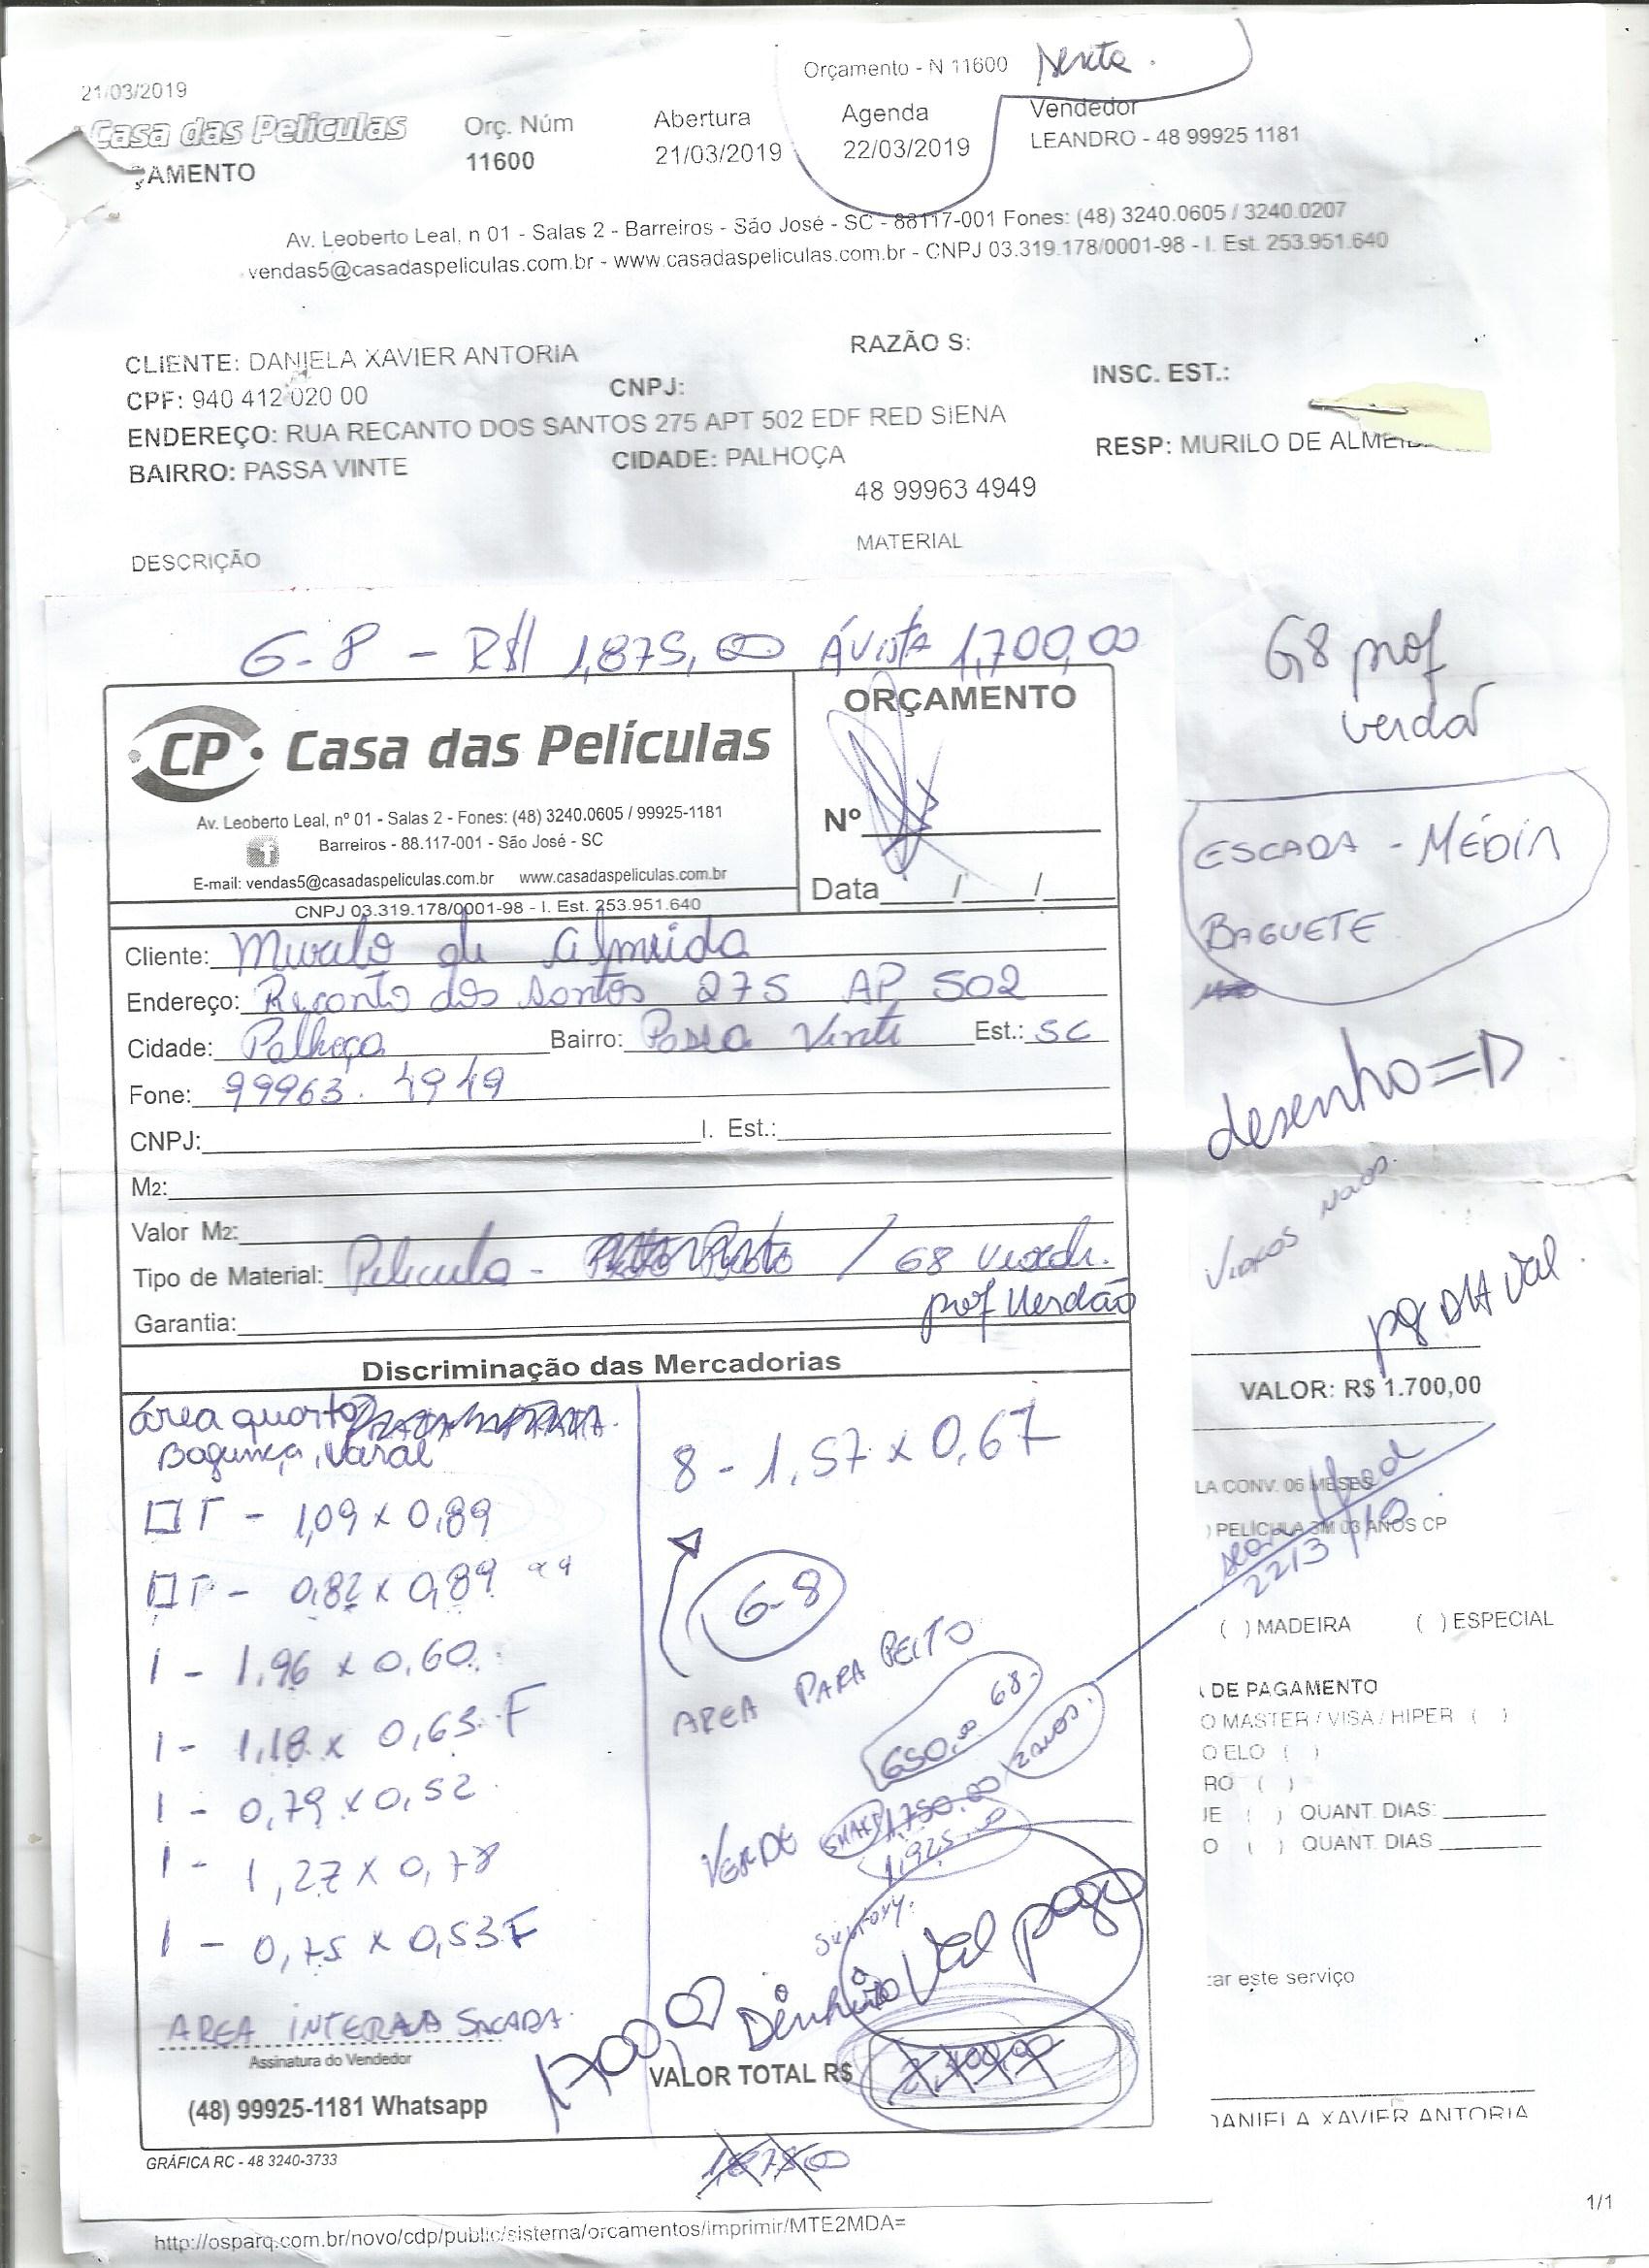 21/03/2019
Orçamento - N 11600
Sexta.
Casa das Películas
ÇAMENTO
Orç. Núm
11600
Abertura
21/03/2019
Agenda
22/03/2019
Vendedor
LEANDRO - 48 99925 1181
Av. Leoberto Leal, n 01 - Salas 2 - Barreiros - São José - SC - 88117-001 Fones: (48) 3240.0605 / 3240.0207
vendas5@casadaspeliculas.com.br - www.casadaspeliculas.com.br - CNPJ 03.319.178/0001-98 - I. Est. 253.951.640
CLIENTE: DANIELA XAVIER ANTORIA
RAZÃO S:
CPF: 940 412 020 00
CNPJ:
INSC. EST.:
ENDEREÇO: RUA RECANTO DOS SANTOS 275 APT 502 EDF RED SIENA
BAIRRO: PASSA VINTE
CIDADE: PALHOÇA
RESP: MURILO DE ALMEID
48 99963 4949
DESCRIÇÃO
MATERIAL
G-8 - R$ 1,875,00 ÁVISTA 1,700,00
G8 prof
verdar
CP Casa das Películas
Av. Leoberto Leal, nº 01 - Salas 2 - Fones: (48) 3240.0605 / 99925-1181
Barreiros - 88.117-001 - São José - SC
E-mail: vendas5@casadaspeliculas.com.br www.casadaspeliculas.com.br
CNPJ 03.319.178/0001-98 - I. Est. 253.951.640
ORÇAMENTO
Nº
Data / /
ESCADA - MÉDIA
BAGUETE
Cliente: Murilo de Almeida
Endereço: Recanto dos Santos 275 AP 502
Cidade: Palhoça Bairro: Passa Vinte Est.: SC
Fone: 99963.4949
CNPJ: I. Est.:
M2:
Valor M2:
Tipo de Material: Pelicula - / G8
prof Verdão
Garantia:
desenho =D
VIDROS
pg DIA Val.
Discriminação das Mercadorias
área quarto
Bagunça, Varal
T - 1,09 x 0,89
- 0,82 x 0,89
1 - 1,96 x 0,60
1 - 1,18 x 0,63 F
1 - 0,79 x 0,52
1 - 1,27 x 0,78
1 - 0,75 x 0,53 F
AREA INTERNA SACADA
Assinatura do Vendedor
(48) 99925-1181 Whatsapp
8 - 1,57 x 0,67
G-8
AREA PARA PEITO
650,00 G8
2 ANOS.
VERDE 1,750,00
1,925,00
1700,00 Dinheiro Val pago
VALOR TOTAL R$
2,100,00
1,875,00
VALOR: R$ 1.700,00
LA CONV. 06 MESES
) PELÍCULA 3M 03 ANOS CP
22/3/19
( ) MADEIRA ( ) ESPECIAL
DE PAGAMENTO
O MASTER / VISA / HIPER ( )
O ELO ( )
RO ( )
JE ( ) QUANT. DIAS:
O ( ) QUANT. DIAS
ar este serviço
DANIELA XAVIER ANTORIA
GRÁFICA RC - 48 3240-3733
http://osparq.com.br/novo/cdp/public/sistema/orcamentos/imprimir/MTE2MDA=
1/1